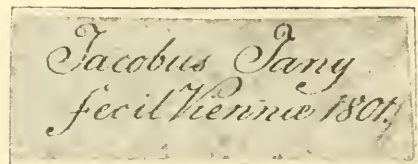 Jacobus Jany
fecit Viennæ 1801